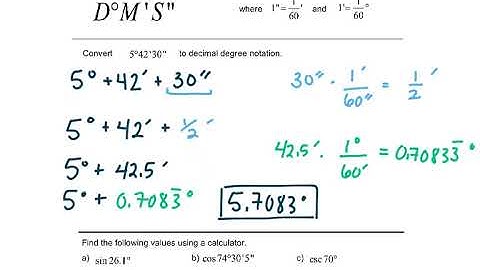 D°M'S"
where 1"=1/60' and 1'=1/60°
Convert 5°42'30" to decimal degree notation.
5° + 42' + 30"
30" · 1'/60" = 1/2'
5° + 42' + 1/2'
42.5' · 1°/60' = 0.7083̅°
5° + 42.5'
5° + 0.7083̅° 5.7083°
Find the following values using a calculator.
a) sin 26.1° b) cos 74°30'5" c) csc 70°